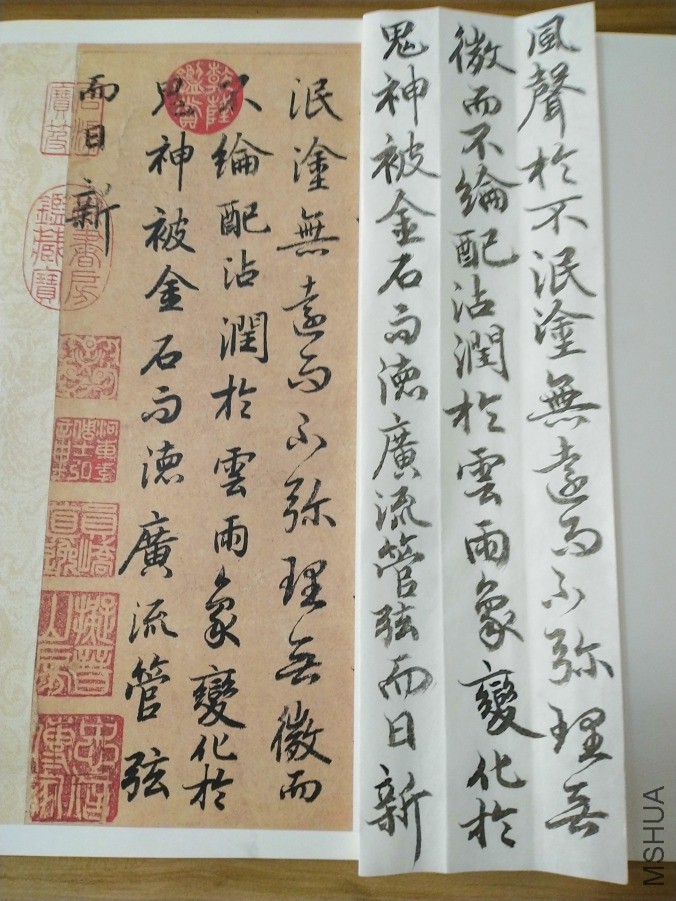 風聲於不泯塗無遠而不弥理無
微而不綸配沾潤於雲雨象變化於
鬼神被金石而德廣流管弦而日新
泯塗無遠而不弥理無微而
不綸配沾潤於雲雨象變化於
鬼神被金石而德廣流管弦
而日新
乾隆
鑑賞
書房
鑑藏寶
MSHUA